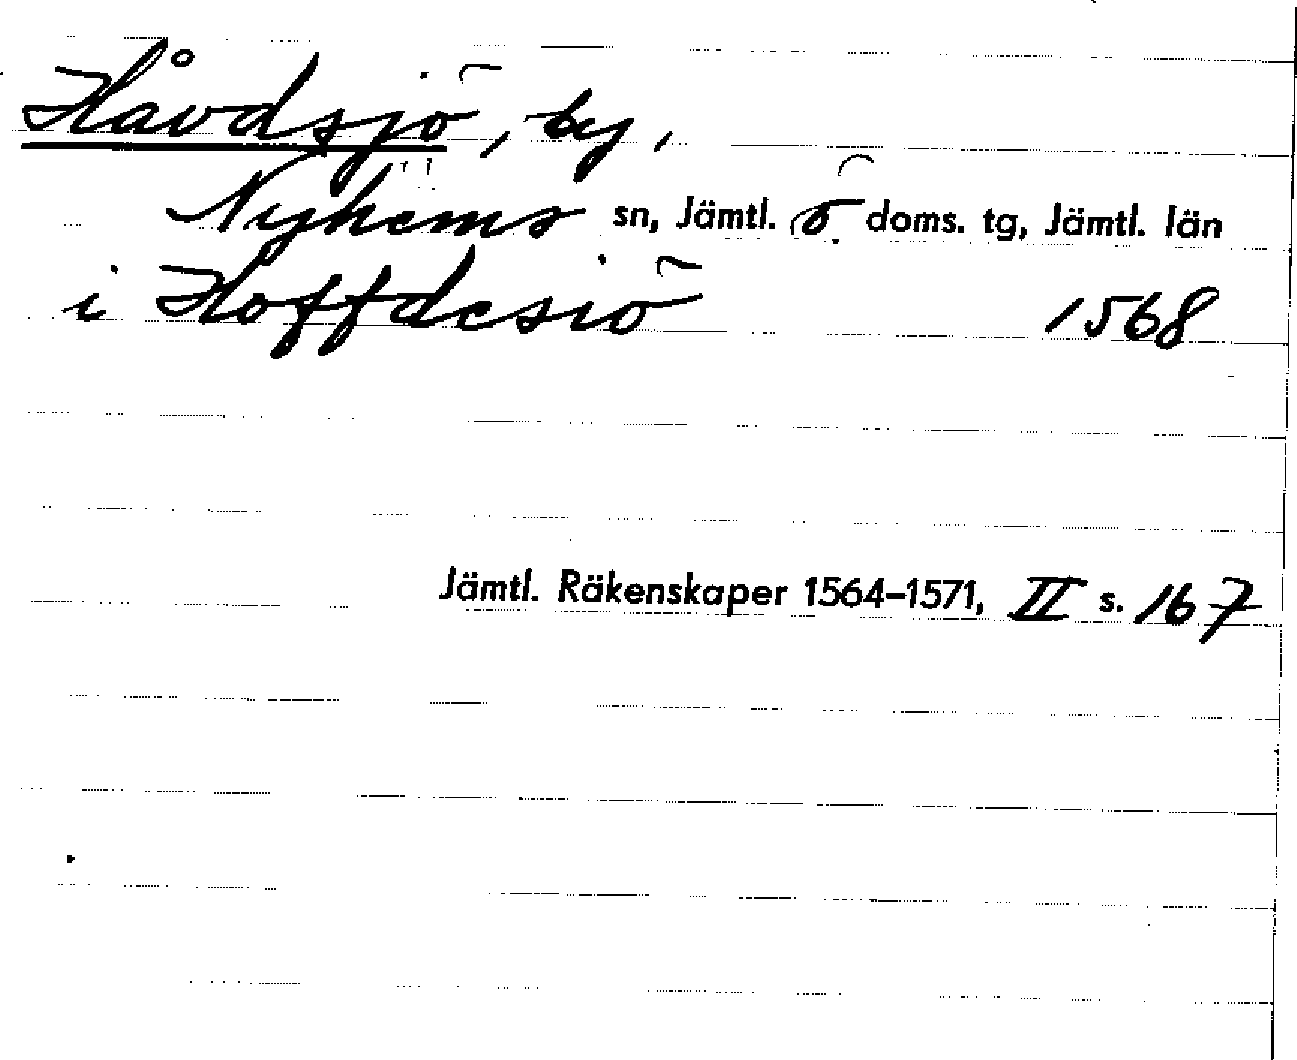 Håvdsjö, by,
Nyhems sn, Jämtl. ö doms. tg, Jämtl. län
i Hoffdesiö 1568
Jämtl. Räkenskaper 1564–1571, II s. 167